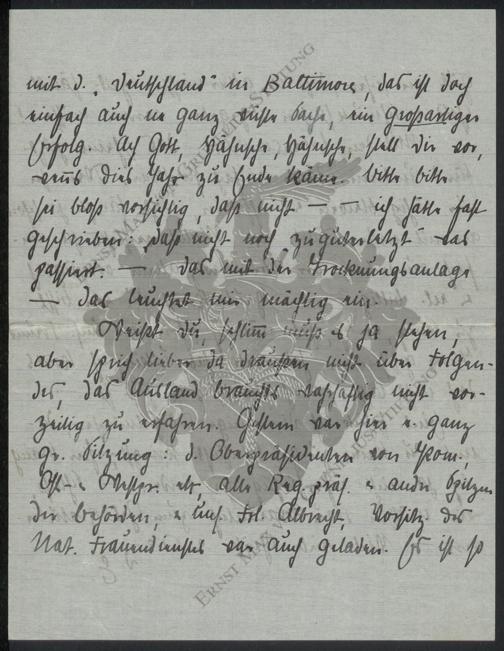 mit d. „Deutschland" in Baltimore, das ist doch
einfach auch ne ganz nette Sache, ein großartiger
Erfolg. Ach Gott, Hähnsche, Hähnsche, stell dir vor,
wenns dies Jahr zu Ende käme. bitte bitte
sei bloss vorsichtig, daß nicht — — ich hätte fast
geschrieben: „daß nicht noch zuguterletzt" was
passiert. — das mit der Trocknungsanlage
— das leuchtet mir mächtig ein.
Weißt du, schlimm muß es ja stehen,
aber sprich lieber da draußen nicht über Folgen-
des, das Ausland brauchts wahrhaftig nicht vor-
zeitig zu erfahren. Gestern war hier e. ganz
gr. Sitzung: d. Oberpräsidenten von Pom.,
Ost- u. Westpr. etc, alle Reg.präs. u. andre Spitzen
der Behörden. u. uns. Frl. Albrecht, Vorsitz. des
Nat. Frauendienstes war auch geladen. Es ist so
ERNST MAX VON
STIFTUNG
ERNST MAX VON
STIFTUNG